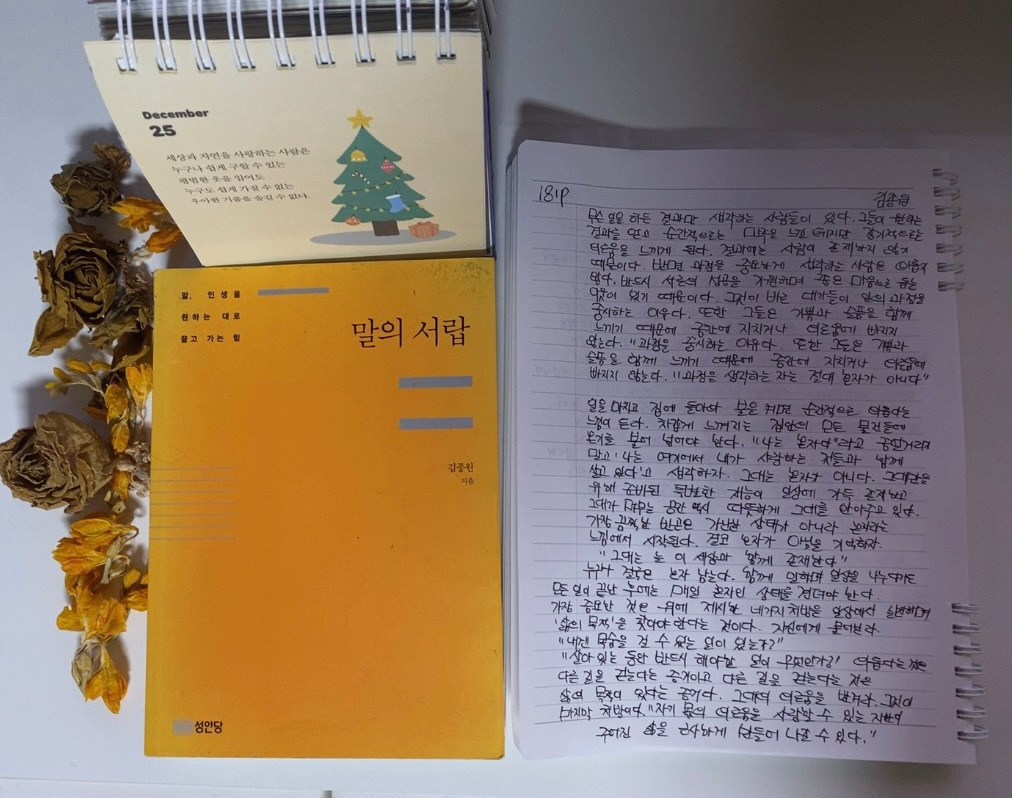 December
25
세상과 자연을 사랑하는 사람은
누구나 쉽게 구할 수 있는
평범한 옷을 입어도
누구도 쉽게 가질 수 없는
우아한 기품을 숨길 수 없다.
말, 인생을
원하는 대로
끌고 가는 힘
말의 서랍
김종원
지음
성안당
181P
김종원
무슨 일을 하든 결과만 생각하는 사람들이 있다. 그들이 원하는
결과를 얻고 순간적으로는 만족을 느낄 테지만 장기적으로는
외로움을 느끼게 된다. 결과에는 사람이 존재하지 않기
때문이다. 반면 과정을 중요하게 생각하는 사람은 외롭지
않다. 반드시 서로의 성공을 기원하며 좋은 마음으로 돕는
이웃이 있기 때문이다. 그것이 바로 대가들이 일의 과정을
중시하는 이유다. 또한 그들은 기쁨과 슬픔을 함께
느끼기 때문에 중간에 지치거나 외로움에 빠지지
않는다. "과정을 중시하는 이유다. 또한 그들은 기쁨과
슬픔을 함께 느끼기 때문에 중간에 지치거나 외로움에
빠지지 않는다. "과정을 생각하는 자는 절대 혼자가 아니다"
일을 마치고 집에 돌아와 불을 켜면 순간적으로 외롭다는
느낌이 든다. 차갑게 느껴지는 집안의 모든 물건들에
온기를 불어 넣어야 한다. "나는 혼자야"라고 중얼거리지
말고 '나는 여기에서 내가 사랑하는 것들과 함께
살고 있다'고 생각하자. 그대는 혼자가 아니다. 그대만을
위해 준비된 특별한 재능이 일상에 가득 존재하고
그대가 머무는 공간 역시 따뜻하게 그대를 안아주고 있다.
가장 끔찍한 빈곤은 가난한 상태가 아니라 혼자라는
느낌에서 시작된다. 결코 혼자가 아님을 기억하자.
"그대는 늘 이 세상과 함께 존재한다"
누구나 결국은 혼자 남는다. 함께 일하며 일상을 나누더라도
모든 일이 끝난 후에는 매일 혼자인 상태를 견뎌야 한다.
가장 중요한 것은 위에 제시한 네가지 처방을 일상에서 실천하며
'삶의 목적'을 찾아야 한다는 것이다. 자신에게 물어보라.
"내겐 목숨을 걸 수 있는 일이 있는가?"
"살아 있는 동안 반드시 해야할 일이 무엇인가?" 외롭다는 것은
다른 길을 걷는다는 증거이고 다른 길을 걷는다는 것은
삶의 목적이 있다는 증거다. 그대의 외로움을 반겨라. 그것이
마지막 처방이다. "자기 몫의 외로움을 사랑할 수 있는 자만이
주어진 삶을 근사하게 만들어 나갈 수 있다."